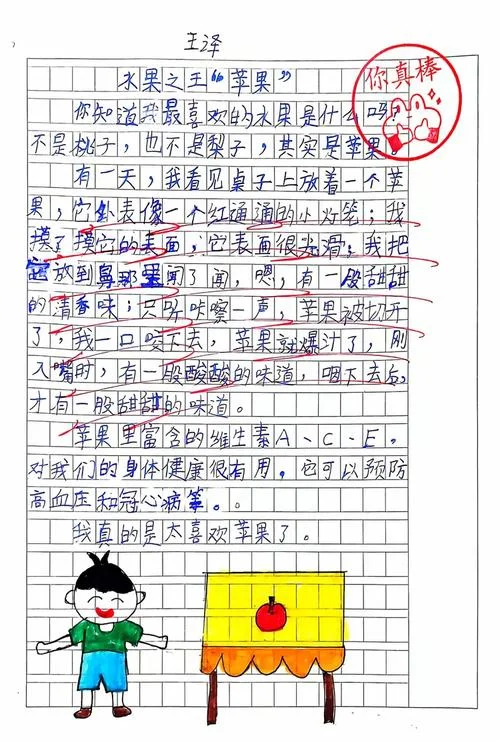 王译
水果之王“苹果”
你真棒
你知道我最喜欢的水果是什么吗？
不是桃子，也不是梨子，其实是苹果。
有一天，我看见桌子上放着一个苹
果，它外表像一个红通通的小灯笼；我
摸了摸它的表面，它表面很光滑；我把
它放到鼻那里闻了闻，嗯，有一股甜甜
的清香味；只听咔嚓一声，苹果被切开
了，我一口咬下去，苹果就爆汁了，刚
入嘴时，有一股酸酸的味道，咽下去后，
才有一股甜甜的味道。
苹果里富含的维生素A、C、E。
对我们的身体健康很有用。它可以预防
高血压和冠心病等。。
我真的是太喜欢苹果了。